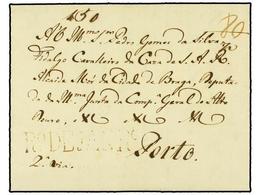 450
80
A Il Mmo Snr Pedro Gomes da Silva
Fidalgo Cavalleiro da Caza de S. A. R.
Alcaide Mór da Cidade de Braga, Deputa-
do da Il Mma Junta da Compa Geral do Alto
Douro,
Porto.
2a via.